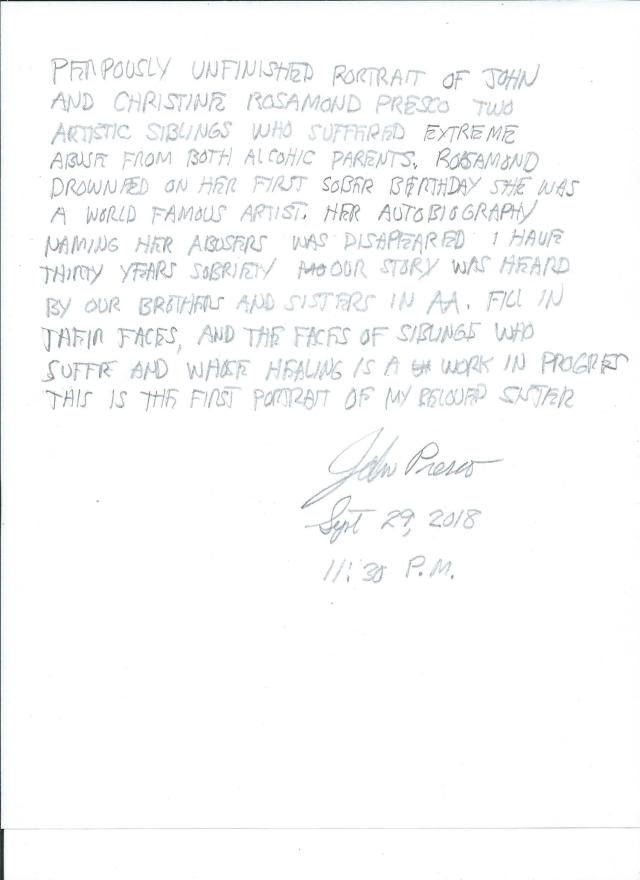 PERPOUSLY UNFINISHED PORTRAIT OF JOHN
AND CHRISTINE ROSAMOND PRESCO TWO
ARTISTIC SIBLINGS WHO SUFFERED EXTREME
ABUSE FROM BOTH ALCOHIC PARENTS. ROSAMOND
DROWNED ON HER FIRST SOBER BERTHDAY SHE WAS
A WORLD FAMOUS ARTIST. HER AUTOBIOGRAPHY
NAMING HER ABUSERS WAS DISAPEARED I HAVE
THIRTY YEARS SOBRIETY OUR STORY WAS HEARD
BY OUR BROTHERS AND SISTERS IN AA. FILL IN
THEIR FACES, AND THE FACES OF SIBLINGS WHO
SUFFR AND WHOSE HEALING IS A WORK IN PROGRES
THIS IS THE FIRST PORTRAIT OF MY BELOVED SISTER
John Presco
Sept 29, 2018
11:30 P.M.